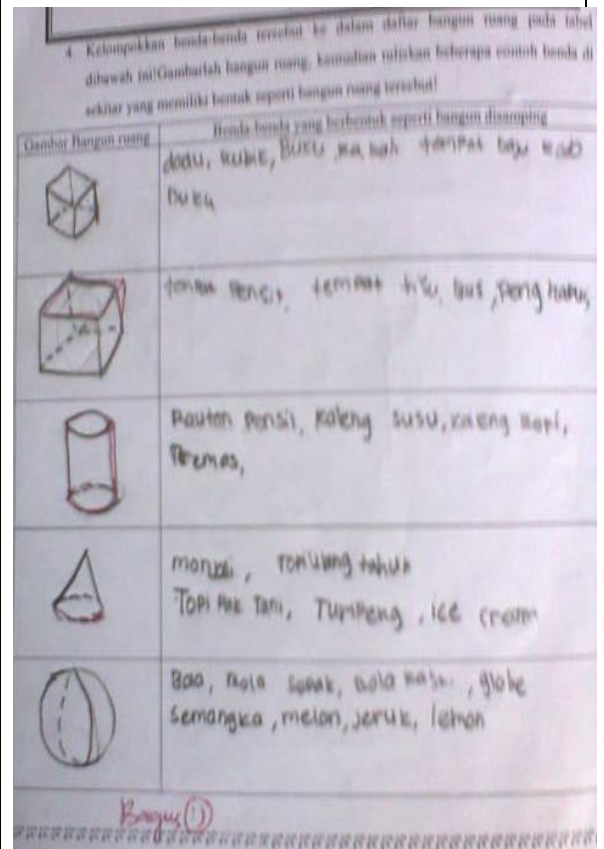 4. Kelompokkan benda-benda tersebut ke dalam daftar bangun ruang pada tabel
dibawah ini!Gambarlah bangun ruang, kemudian tuliskan beberapa contoh benda di
sekitar yang memiliki bentuk seperti bangun ruang tersebut!
Gambar Bangun ruang
Benda-benda yang berbentuk seperti bangun disamping
dadu, rubik, Buku, tempat baju
Buku
pensil, tempat tisu, bus, penghapus,
Rautan pensil, kaleng susu, kaleng kopi,
Topi Pak Tani, Tumpeng, ice cream
Bola, Bola sepak, bola, globe
semangka, melon, jeruk, lemon
Bagus :)